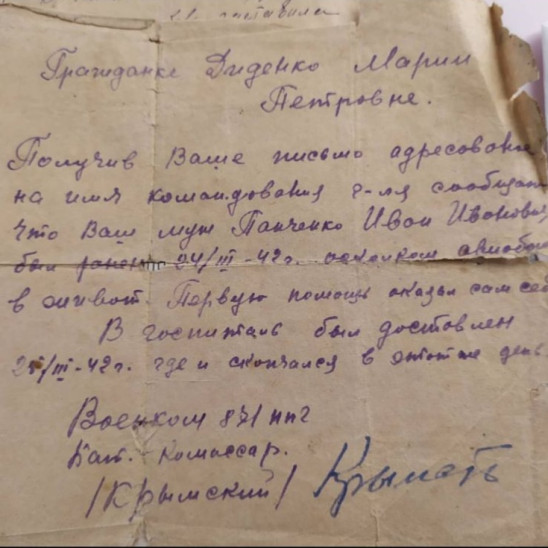 Гражданке Диденко Марии
Петровне.
Получив Ваше письмо адресованое
на имя командования г-ля сообщаем
что Ваш муж Панченко Иван Иванович
был ранен 24/III-42г. осколком авиабом
в живот. Первую помощь оказал сам себе
В госпиталь был доставлен
/III-42г. где и скончался в этот же день
Военком 871 ппг
Бат. Комиссар.
/Крымский/